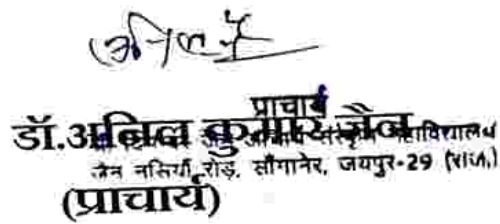 प्राचार्य
डॉ.अनिल कुमार जैन
संस्कृत महाविद्यालय
जैन नसियाँ रोड़, साँगानेर, जयपुर-29 (राज.)
(प्राचार्य)